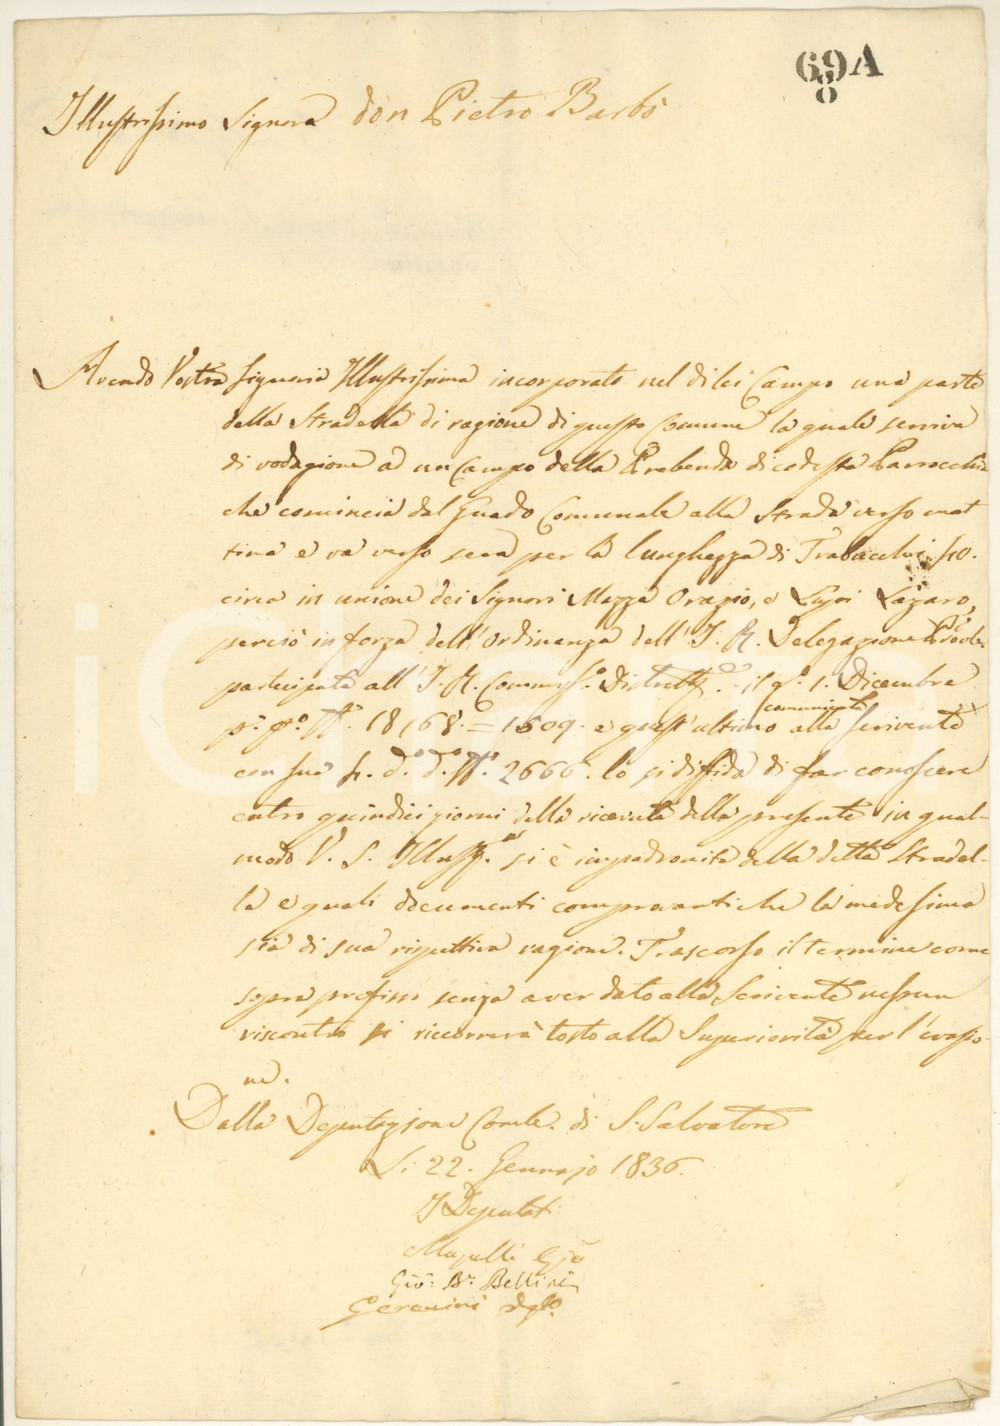 69A
8
Illustrissimo Signore don Pietro Barbò
Avendo Vostra Signoria Illustrissima incorporato nel di lei Campo una parte
della Stradella di ragione di questo Comune la quale serviva
di vodagione ad un Campo della Prebenda di codesta Parrocchia
che comincia dal Guado Comunale alla Strada verso mat
tina e va verso sera per la lunghezza di Trabucchi 40.
circa in unione dei Signori Mazza Orazio, e Lupi Lazaro,
perciò in forza dell'Ordinanza dell'I. R. Delegazione Provle
partecipata all'I. R. Commiss.o Distrett. il g.o 1. Dicembre
p.o p.o N.o 18168. = 1509. e quest'ultimo comunicata alla scrivente
con suo d.o d.o N.o 2666. lo si diffida di far conoscere
entro quindici giorni della ricevuta della presente in qual
modo V. S. Illust. si è impadronita della detta Stradel-
la e quali documenti comprovanti che la medesima
sia di sua rispettiva ragione. Trascorso il termine come
sopra prefisso senza aver dato alla Scrivente nessun
riscontro si ricorrerà tosto alla Superiorità per l'evasio-
ne.
Dalla Deputazione Comle. di S. Salvatore
Li 22. Gennajo 1836.
I Deputati
Gio: Ba. Bellini
Geromini